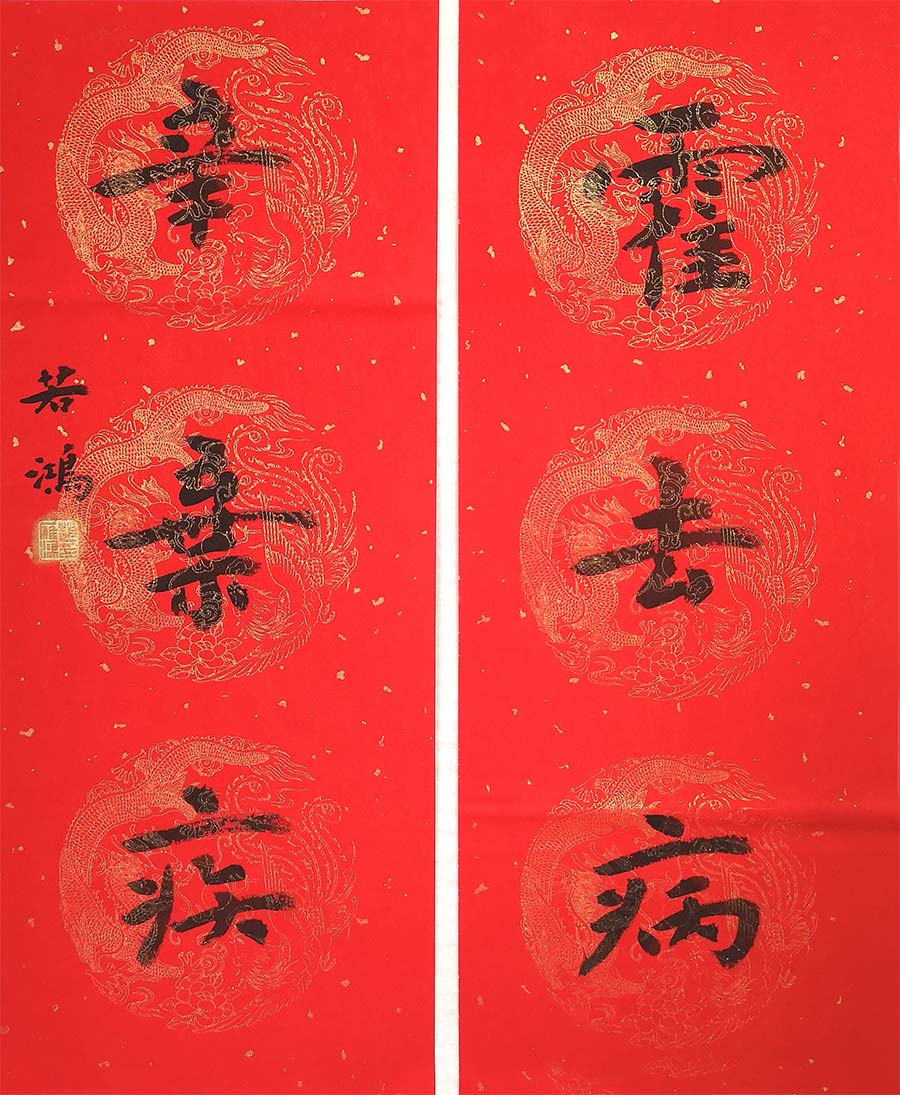 霍去病
辛棄疾
若鴻